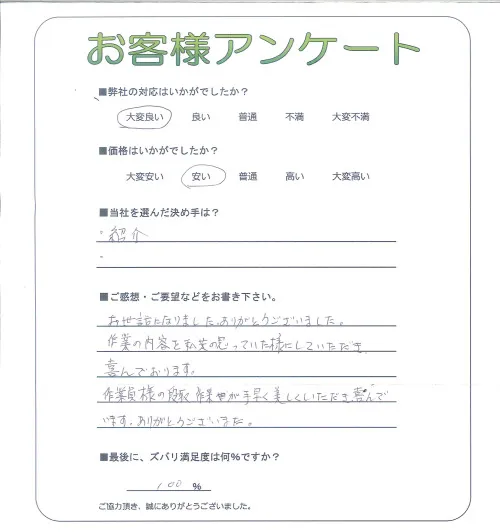 お客様アンケート
■弊社の対応はいかがでしたか?
大変良い 良い 普通 不満 大変不満
■価格はいかがでしたか?
大変安い 安い 普通 高い 大変高い
■当社を選んだ決め手は?
・紹介
・
■ご感想・ご要望などをお書き下さい。
お世話になりました。ありがとうございました。
作業の内容を私共の思っていた様にしていただき
喜んでおります。
作業員様の 作業 が手早く美しくいただき喜んで
います。ありがとうございました。
■最後に、ズバリ満足度は何%ですか?
100 %
ご協力頂き、誠にありがとうございました。